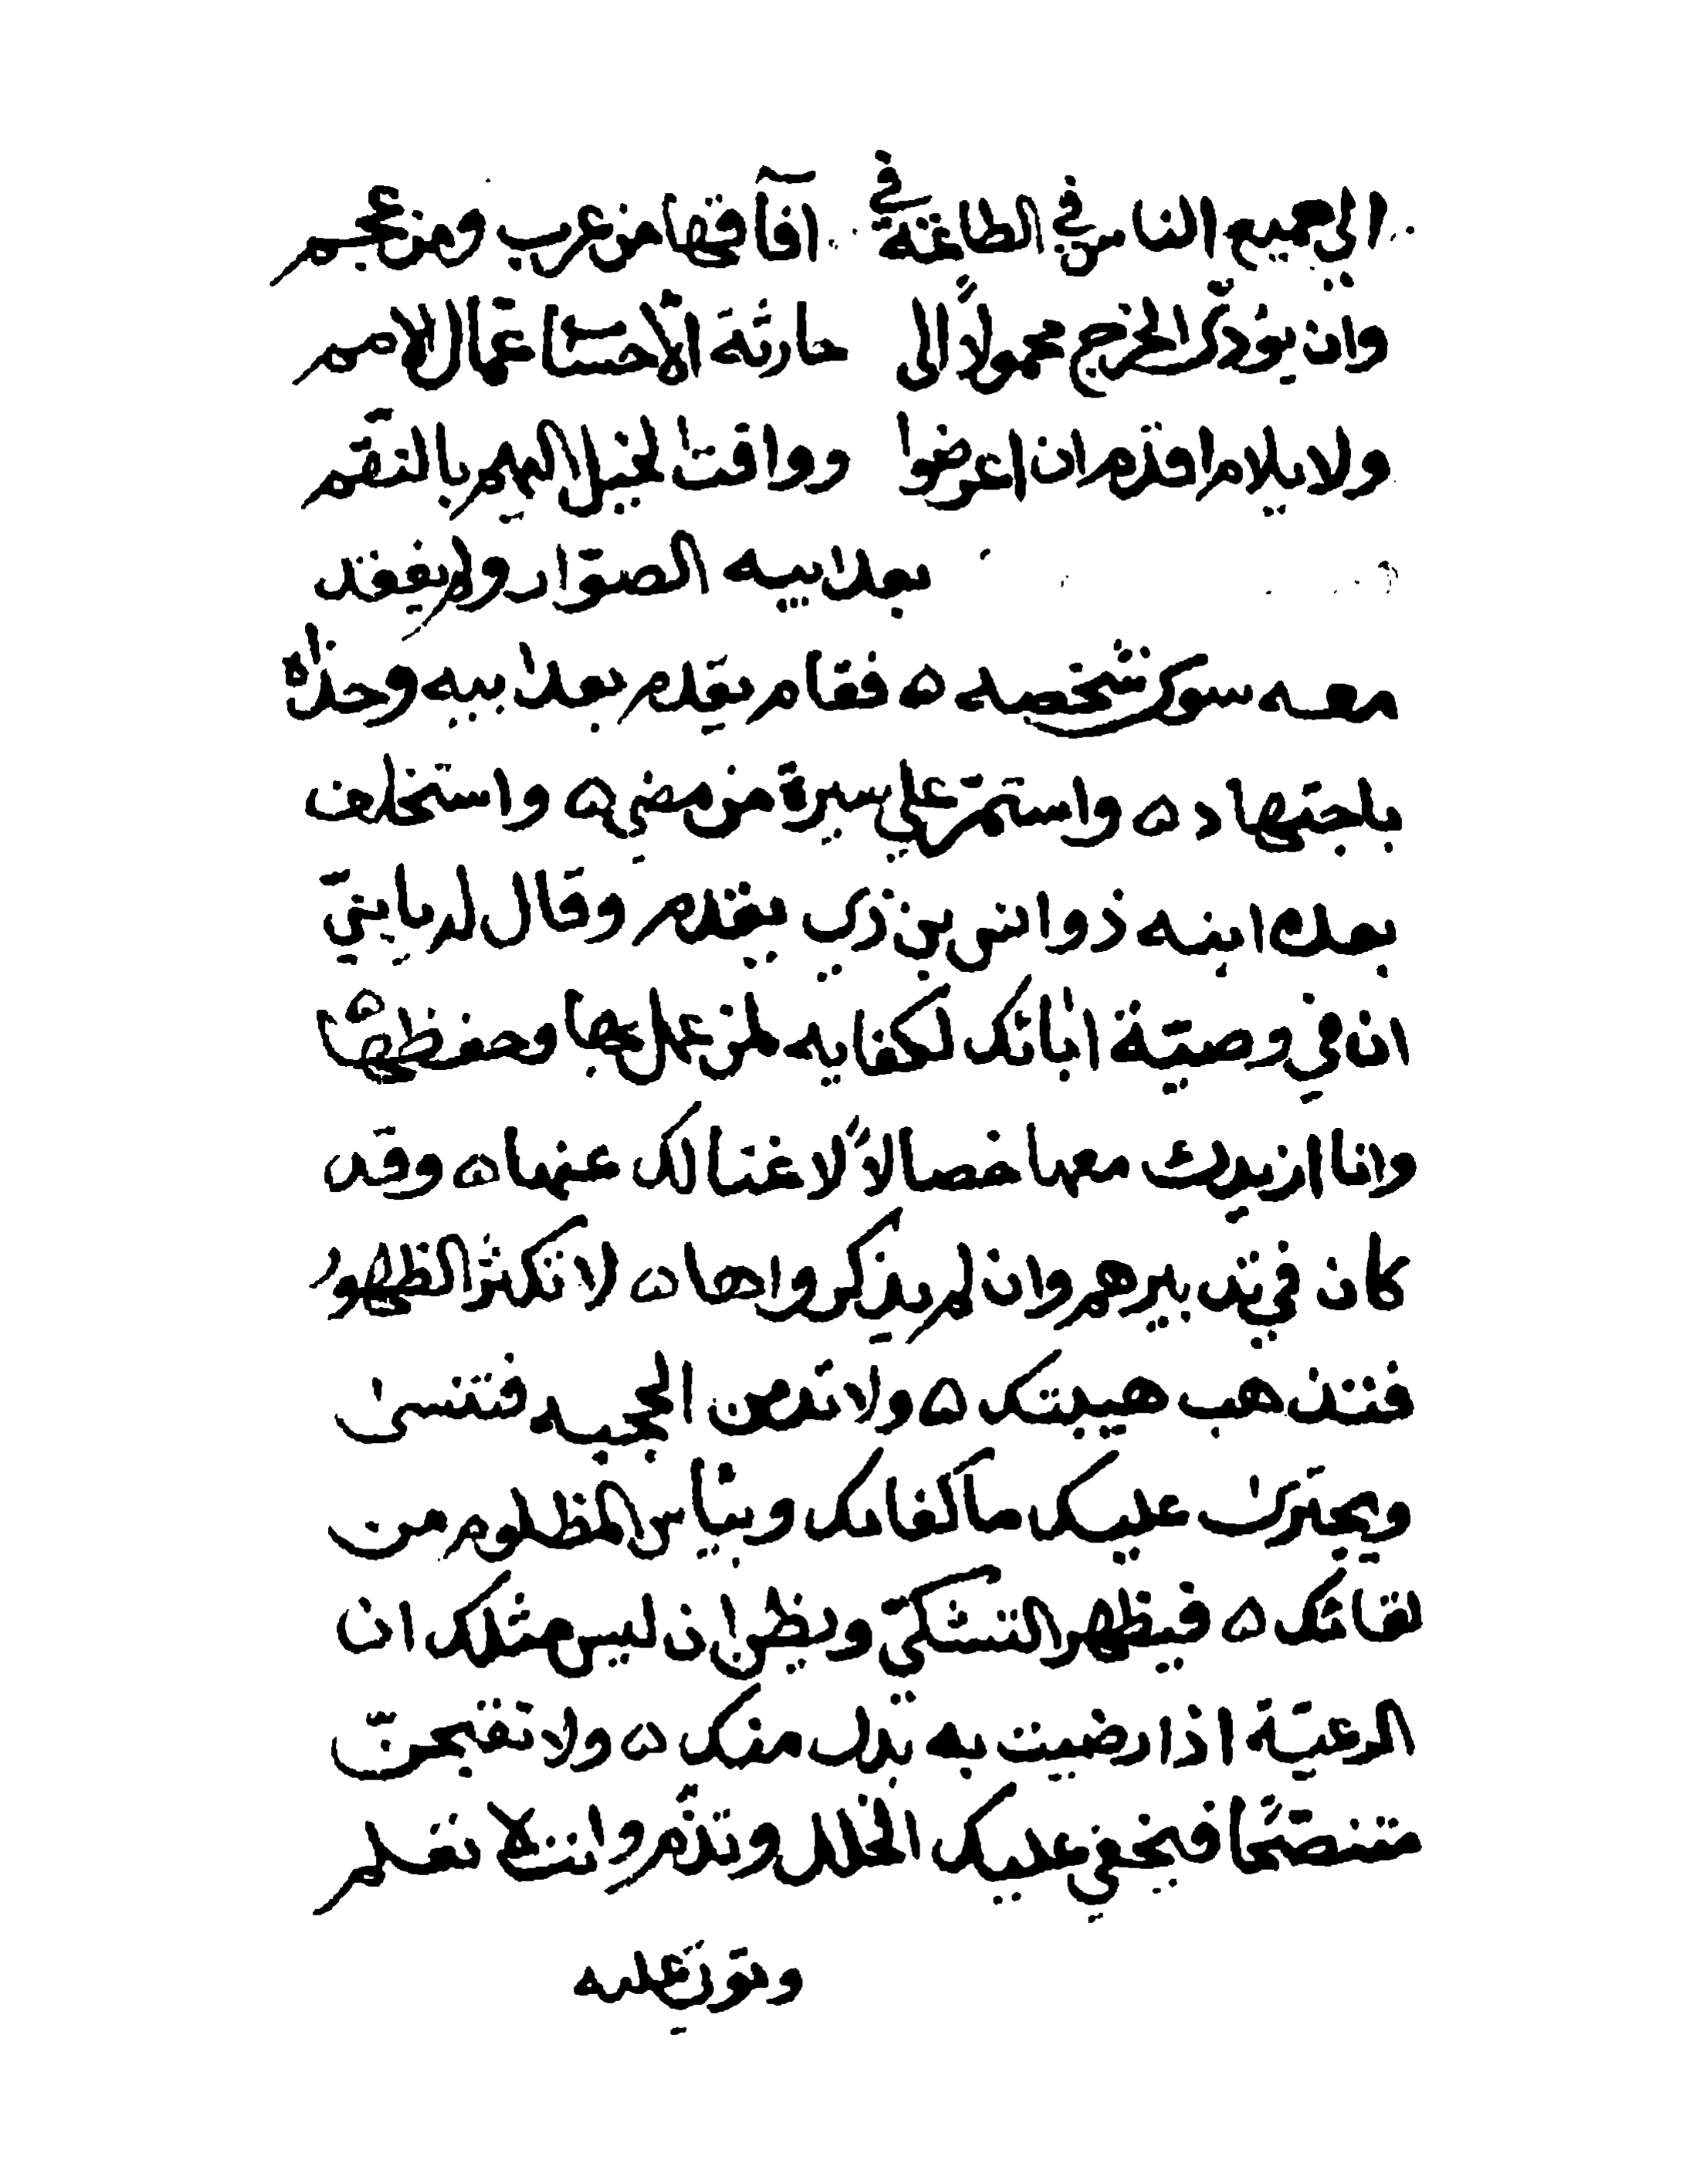 الى جميع الناس في الطاعة في آفاقها من عرب ومن عجم
وان يؤدى الخرج محمولاً الى حارثة الأحسا عمال الامم
ولا يلام اقدم ان اعرضوا وواقت الخيل اليهم بالنقم
بعد ابيه الصوار ولم يفقد
معه سوى شخصه ه فقام يقدم بعد ابيه وحذاه
باجتهاد ه واستمر على سيرة من مضى ه واستخلف
بعده ابنه ذو انس بن ذي يقدم وقال له يا بني
ان في وصية ابائك لكفايه لمن عمل بها وحفظها
وانا ازيدك معها خصالاً لا غنا لك عنها ه وقد
كان في تدبيرهم وان لم يذكرواها ه لا تكثر الظهور
فتذهب هيبتك ه ولا تدمن الحجبه فتنسى
ويجترى عليك ما كفاك وييأس المظلوم من
لقائك ه فيظهر التشكي ويظن ان ليس مثلك ان
الرعية اذا رضيت به بدل منك ه ولا تقبحن
متنصحًا فيخفى عليك الخلل وتذم وانت لا تعلم
وتوزي عليه